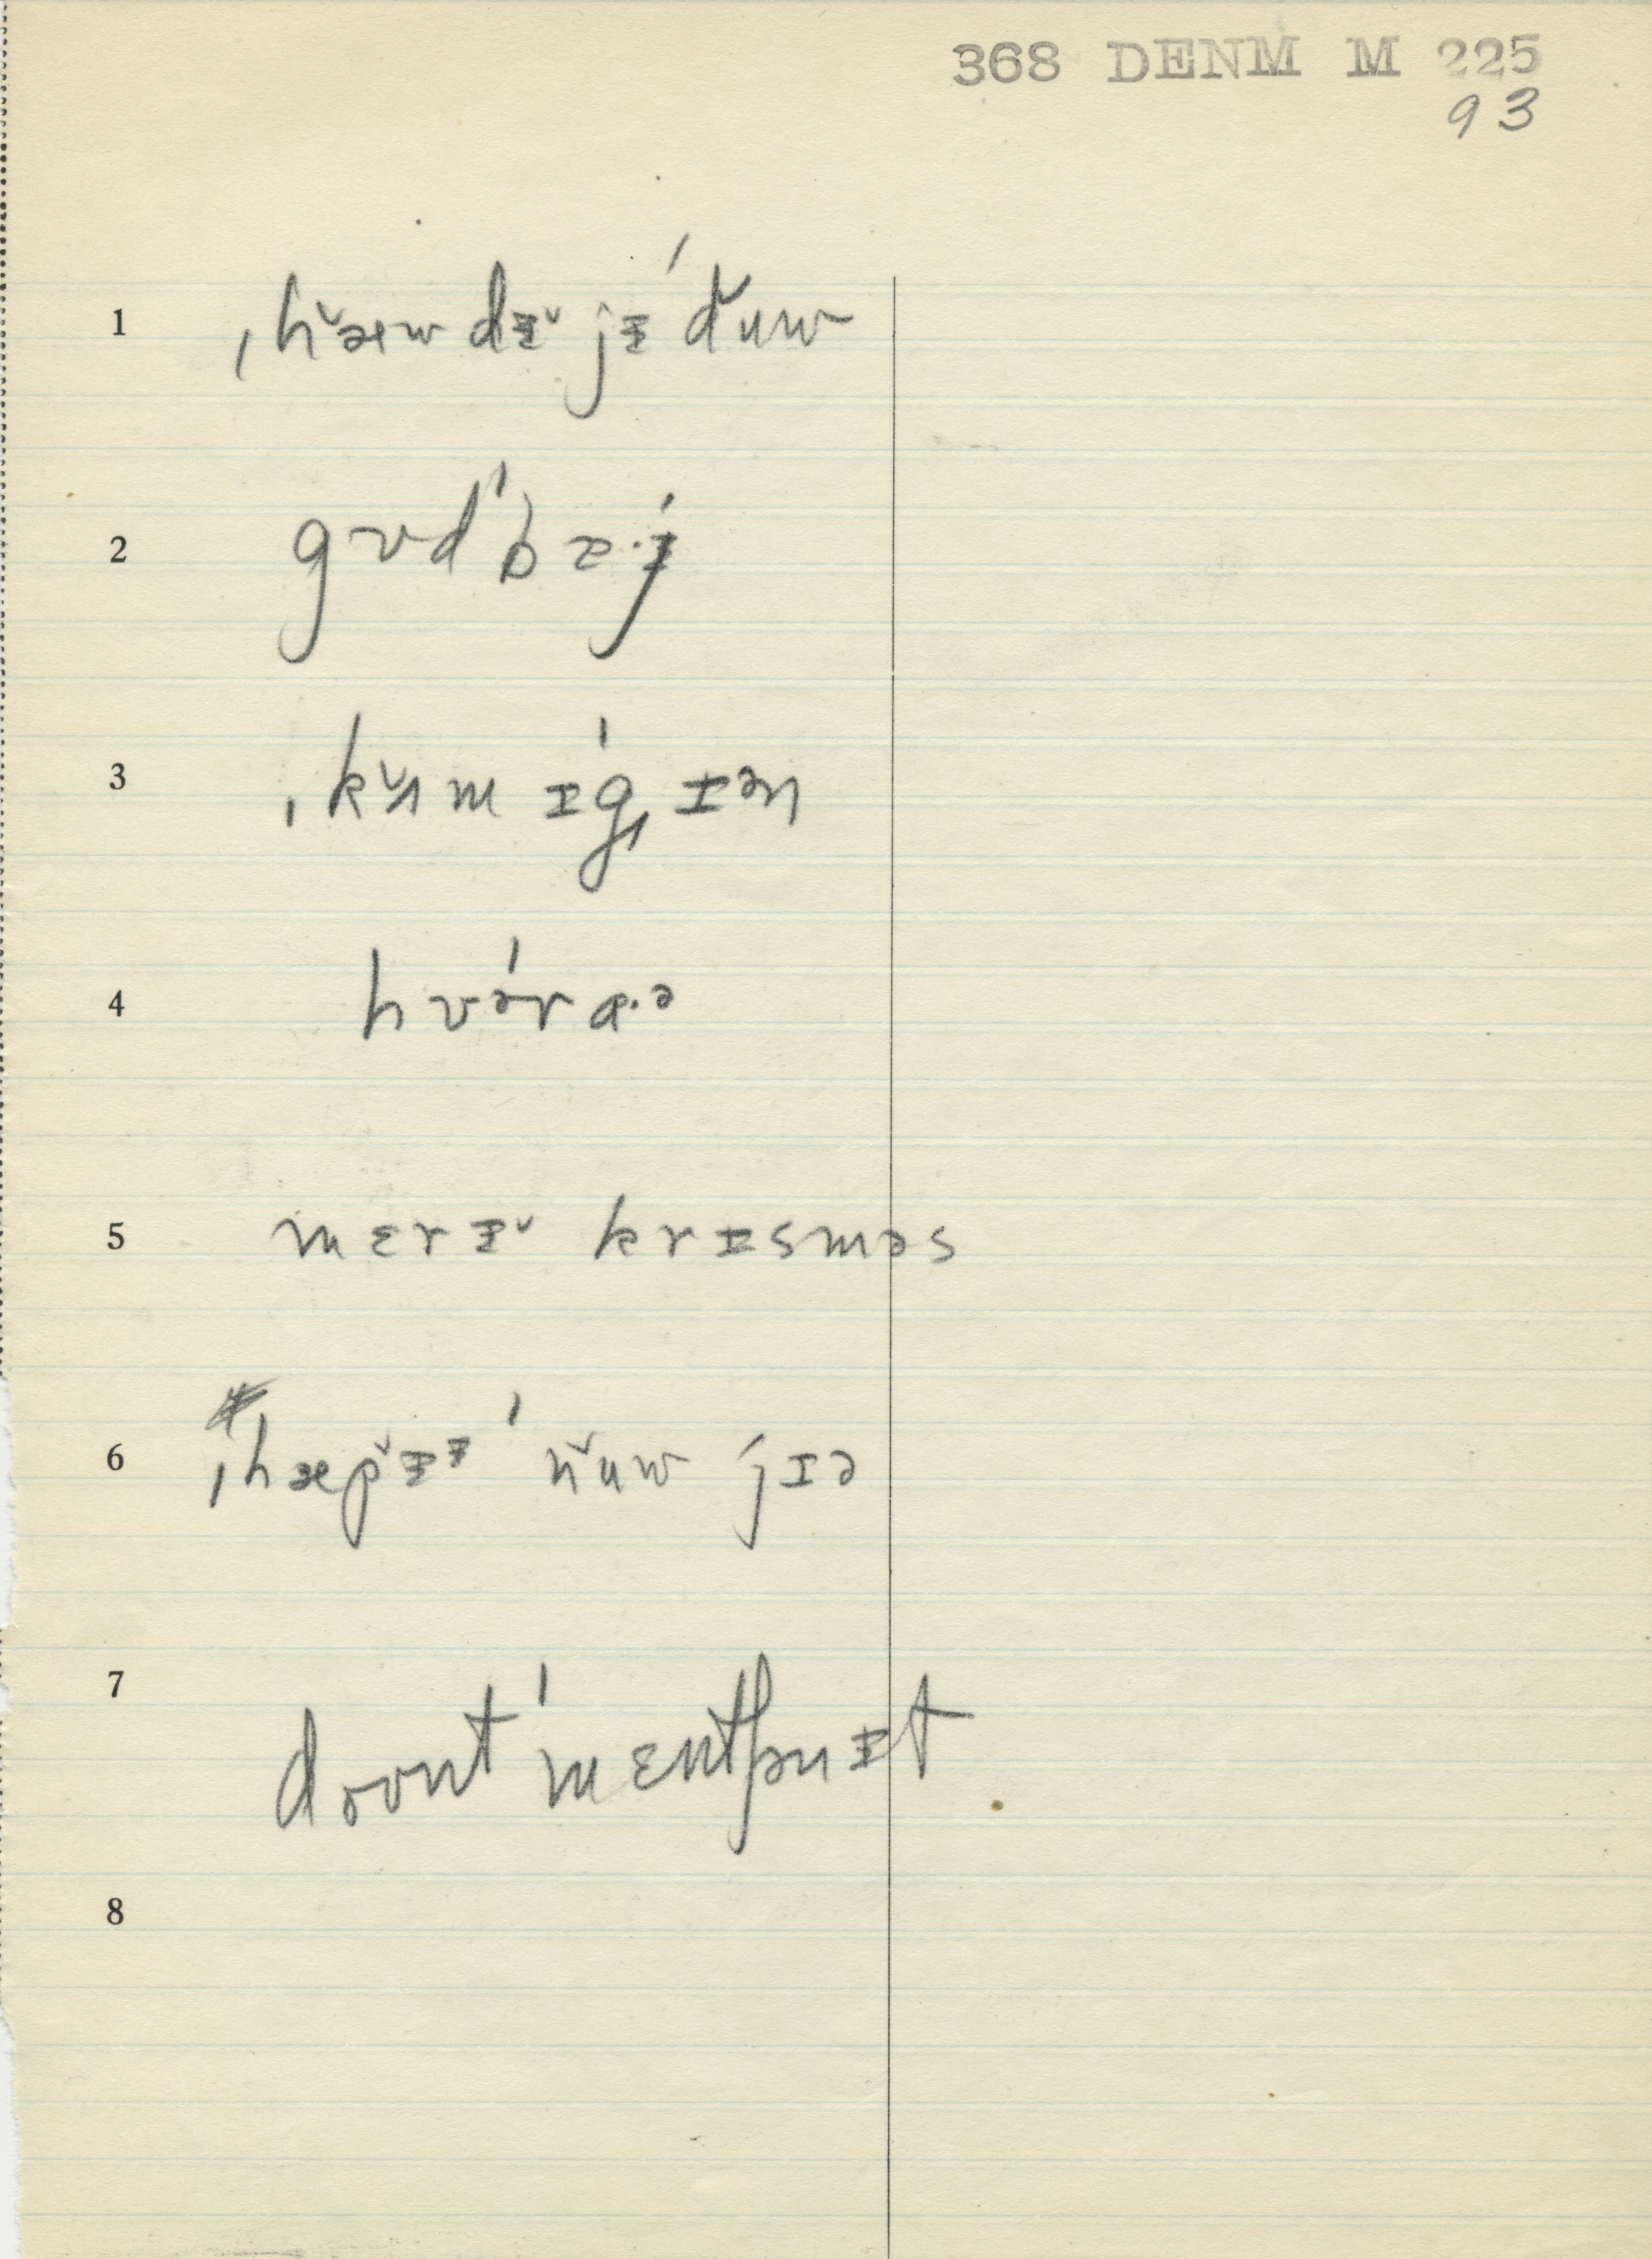 368 DENM M 225
93
1 ˌhæ̌w dɨ̌ jɨ ˈdǔw
2 gʊd ˈba·ɨ́
3 ˌkʌ̌m ɪˈgˌɪən
4 hʊˈrɑ·ə
5 mɛrɨ̌ krɪsməs
6 ˌhæp̌ɨᵻ ˈňuw jɪə
7 doʊnt ˈmɛntʃənɪt
8